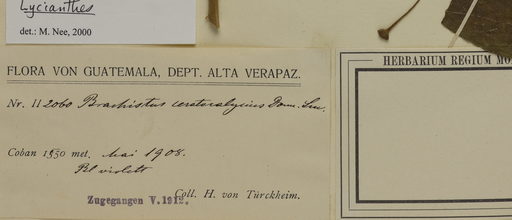 Lycianthes
det.: M. Nee, 2000
FLORA VON GUATEMALA, DEPT. ALTA VERAPAZ.
Nr. II 2060 Brachistus
Coban 1350 met. Mai 1908.
Bl violett
Coll. H. von Türckheim.
Zugegangen V. 1912.
HERBARIUM REGIUM MO